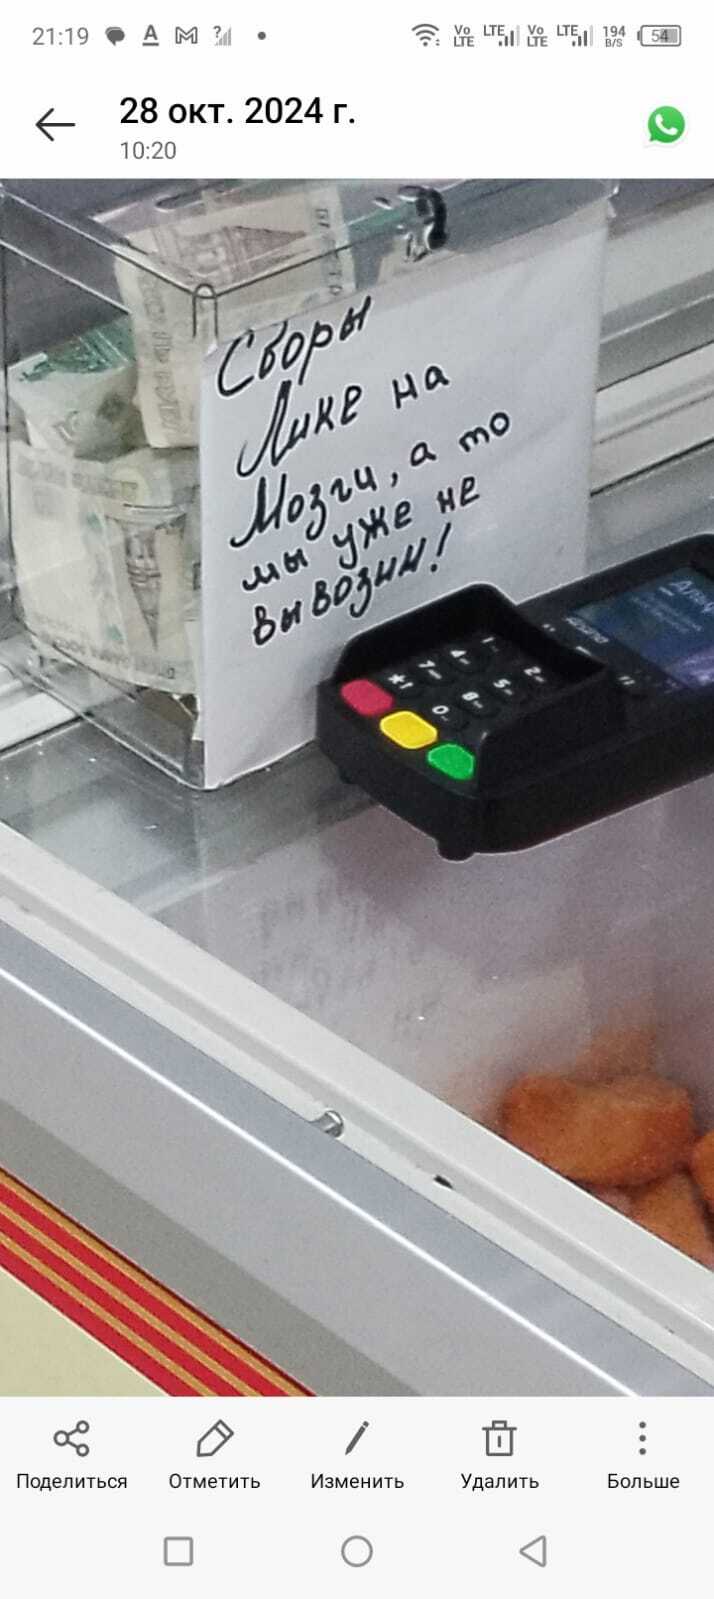 21:19
Vo LTE LTE Vo LTE LTE 194 B/S 54
28 окт. 2024 г.
10:20
Сборы
Лике на
Мозги, а то
мы уже не
вывозим!
Поделиться Отметить Изменить Удалить Больше